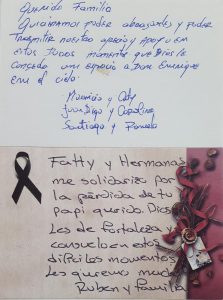 Querida Familia
Quisieramos poder abrazarles y poder
transmitir nuestro aprecio y apoyo en
estos duros momentos que Dios le
conceda un espacio a Don Enrique
en el cielo
Mauricio y Caty
Juan Diego y Carolina
Santiago y
Fatty y Hermanas
me solidarizo por
la pérdida de tu
papi querido Dios
Les de fortaleza y
consuelo en estos
difíciles momentos
Les queremos mucho
Ruben y familia